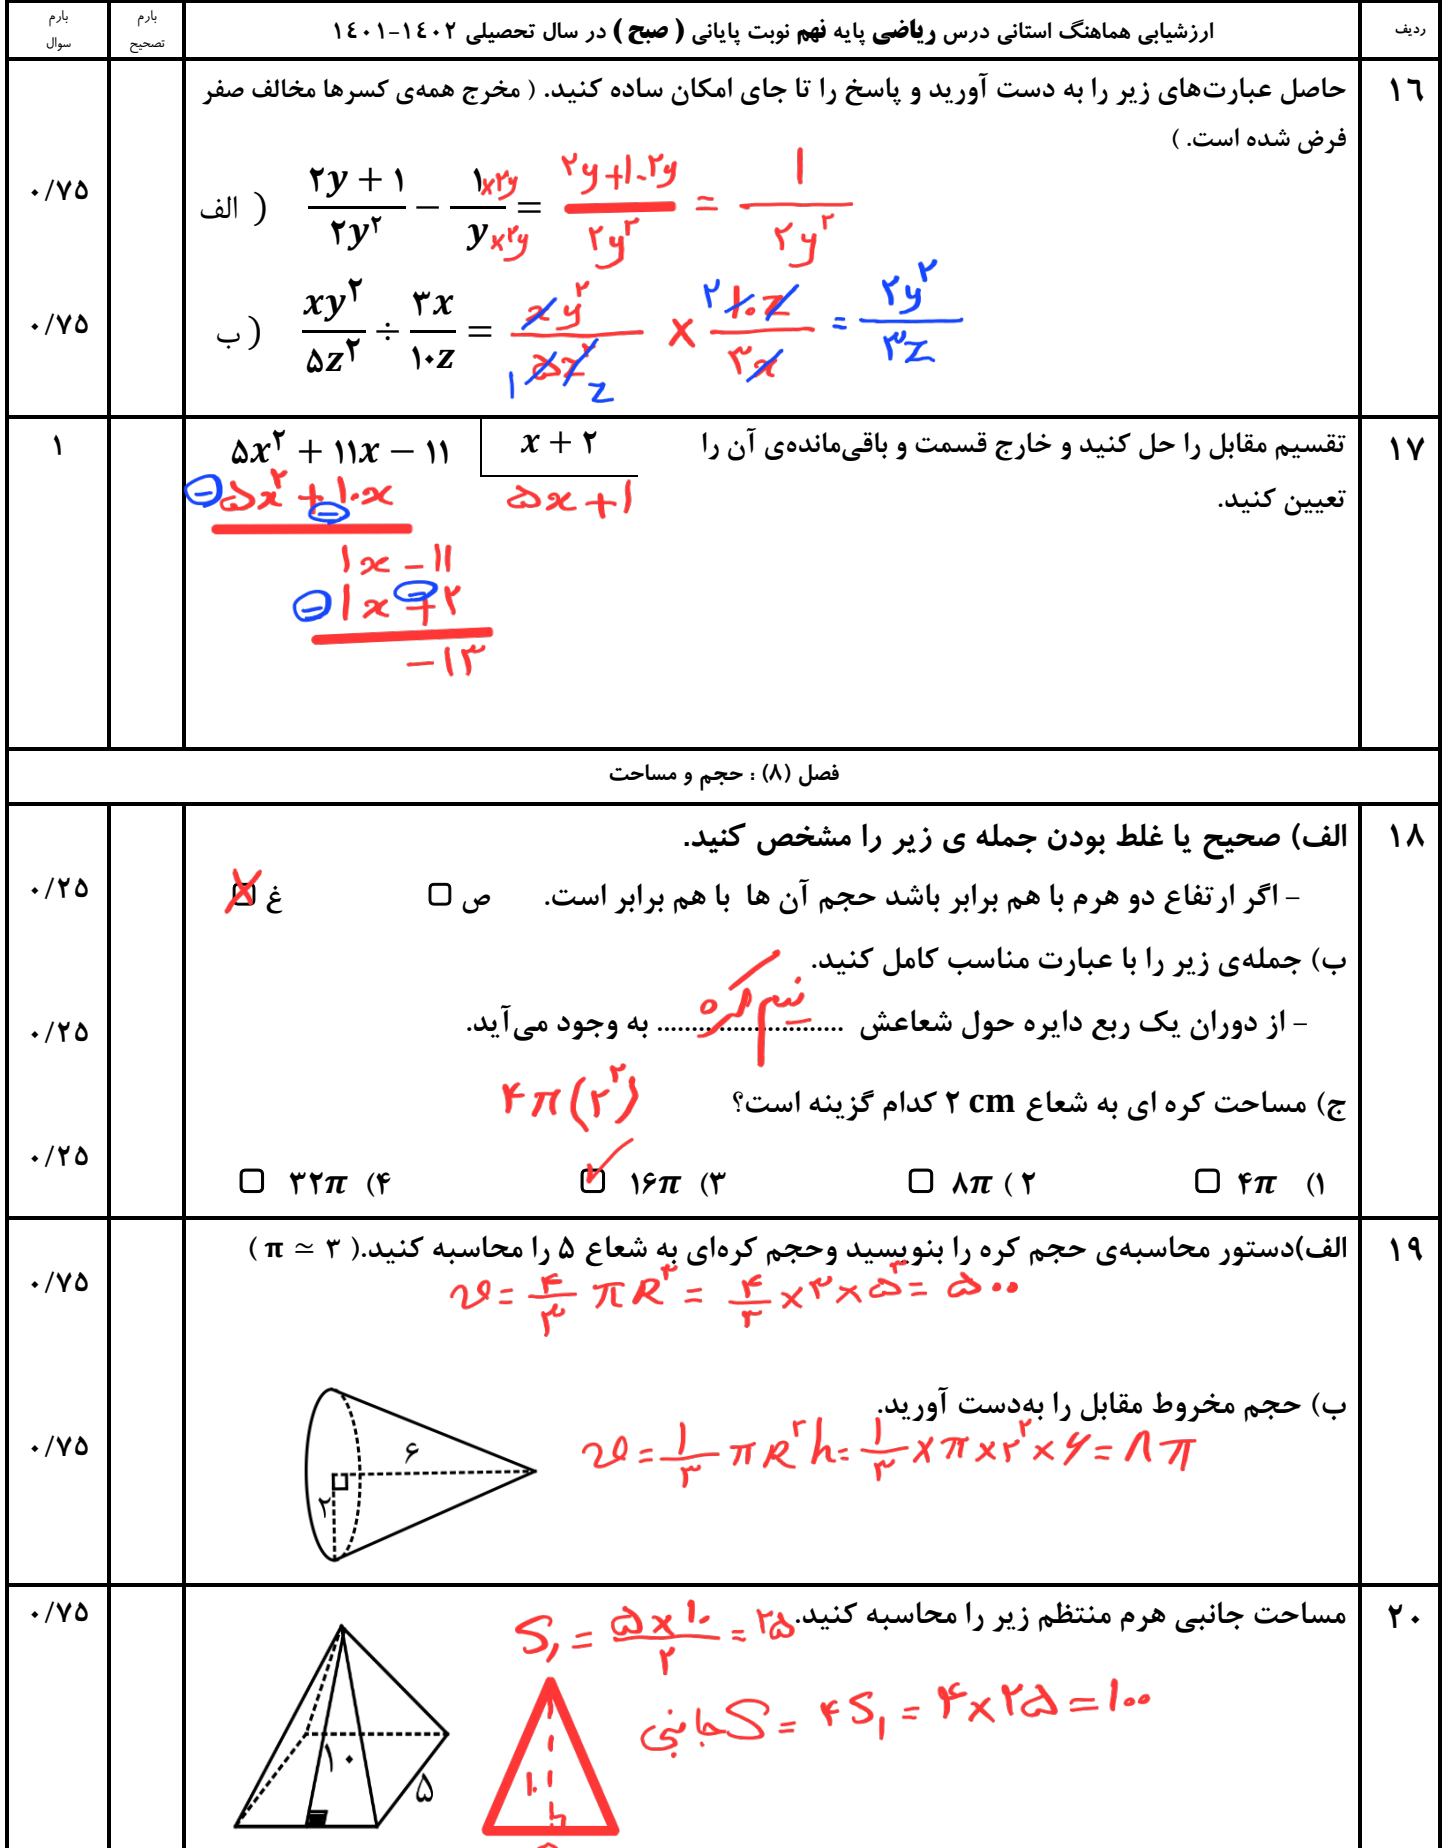 ردیف
ارزشیابی هماهنگ استانی درس ریاضی پایه نهم نوبت پایانی ( صبح ) در سال تحصیلی ١٤٠٢-١٤٠١
بارم تصحیح
بارم سوال
١٦
حاصل عبارت‌های زیر را به دست آورید و پاسخ را تا جای امکان ساده کنید. ( مخرج همه‌ی کسرها مخالف صفر
فرض شده است. )
الف ) (۲y + ۱)/(۲y^۲) − (۱ ×۲y)/(y ×۲y) = (۲y+۱-۲y)/(۲y^۲) = ۱/(۲y^۲)
۰/۷۵
ب ) (xy^۲)/(۵z^۲) ÷ (۳x)/(۱۰z) = (xy^۲)/(۵z^۲) × (۱۰z)/(۳x) = (۲y^۲)/(۳z)
۱ z ۲
۰/۷۵
١٧
تقسیم مقابل را حل کنید و خارج قسمت و باقی‌مانده‌ی آن را
تعیین کنید.
۵x^۲ + ۱۱x − ۱۱ | x + ۲
− ۵x^۲ + ۱۰x − ۵x + ۱
۱x − ۱۱
− ۱x + ۲ −
−۱۳
۱
فصل (۸) : حجم و مساحت
١٨
الف) صحیح یا غلط بودن جمله ی زیر را مشخص کنید.
- اگر ارتفاع دو هرم با هم برابر باشد حجم آن ها با هم برابر است. ص □ غ □
۰/۲۵
ب) جمله‌ی زیر را با عبارت مناسب کامل کنید.
- از دوران یک ربع دایره حول شعاعش ........................... به وجود می‌آید.
نیم کره
۰/۲۵
ج) مساحت کره ای به شعاع ۲ cm کدام گزینه است؟
۴π(۲^۲)
۱) ۴π □ ۲ ) ۸π □ ۳) ۱۶π □ ۴) ۳۲π □
۰/۲۵
١٩
الف)دستور محاسبه‌ی حجم کره را بنویسید وحجم کره‌ای به شعاع ۵ را محاسبه کنید.( π ≃ ۳ )
v = ۴/۳ πR^۳ = ۴/۳ × ۳ × ۵^۳ = ۵۰۰
۰/۷۵
ب) حجم مخروط مقابل را به‌دست آورید.
v = ۱/۳ πR^۲h = ۱/۳ × π × ۲^۲ × ۶ = ۸π
۶
۲
۰/۷۵
۲۰
مساحت جانبی هرم منتظم زیر را محاسبه کنید.
S۱ = (۵ × ۱۰)/۲ = ۲۵
S جانبی = ۴S۱ = ۴×۲۵ = ۱۰۰
۱۰
۵
۱۰
۰/۷۵